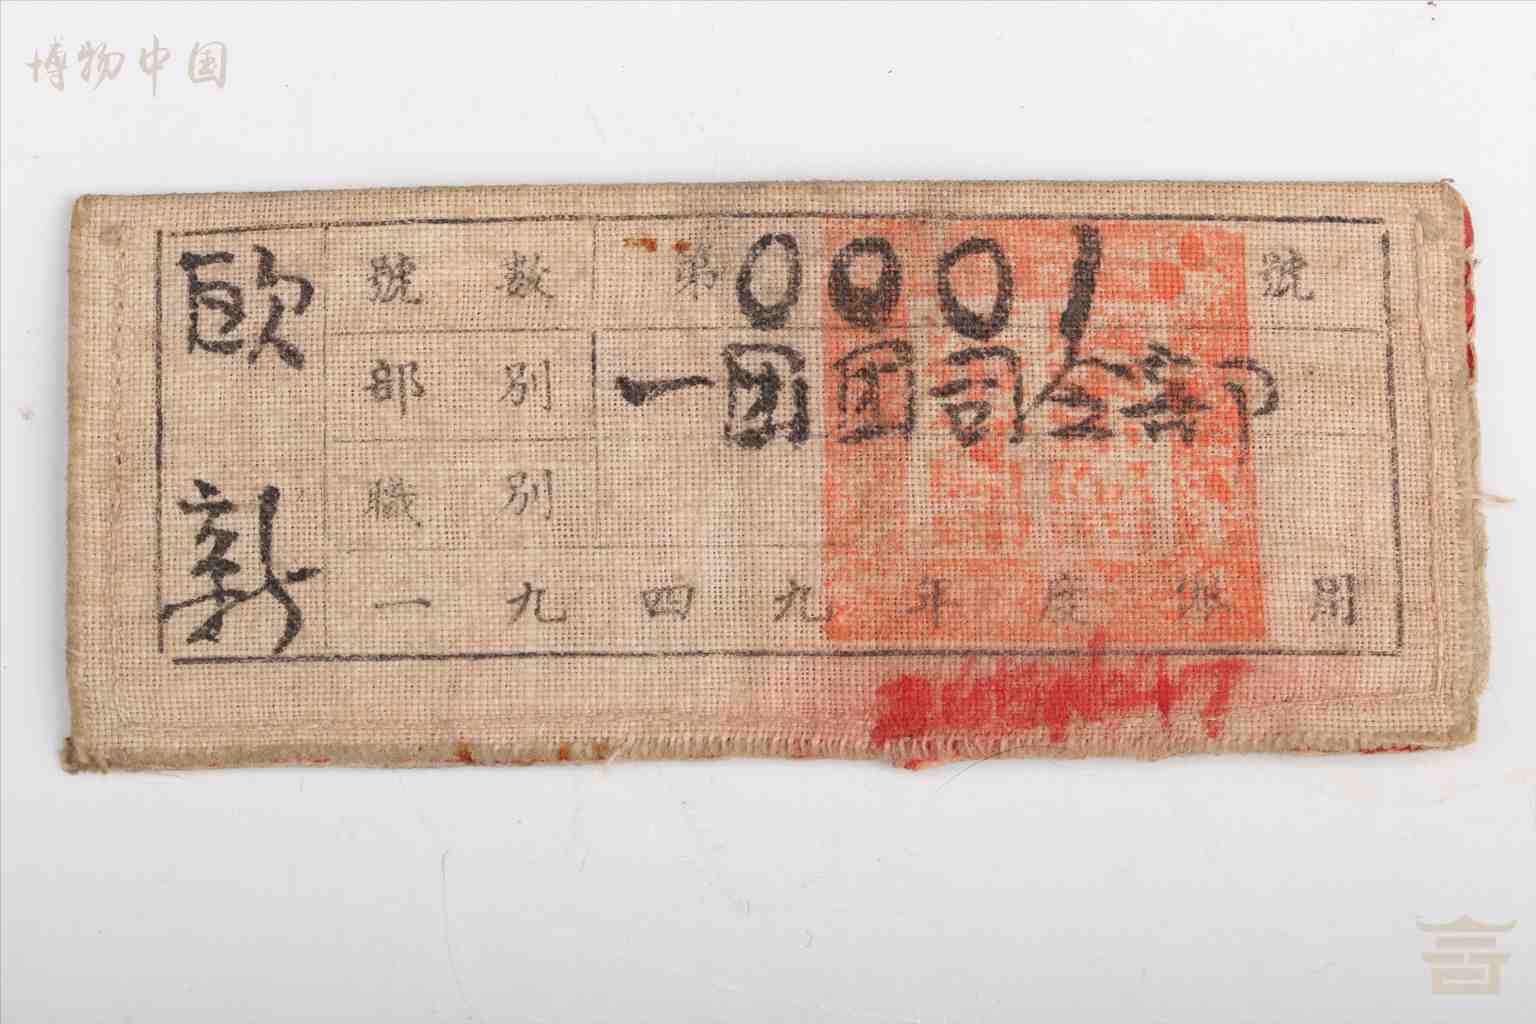 博物中国
歐新
號數 第0001號
部別 一团团司令部
職別
一九四九年度限用